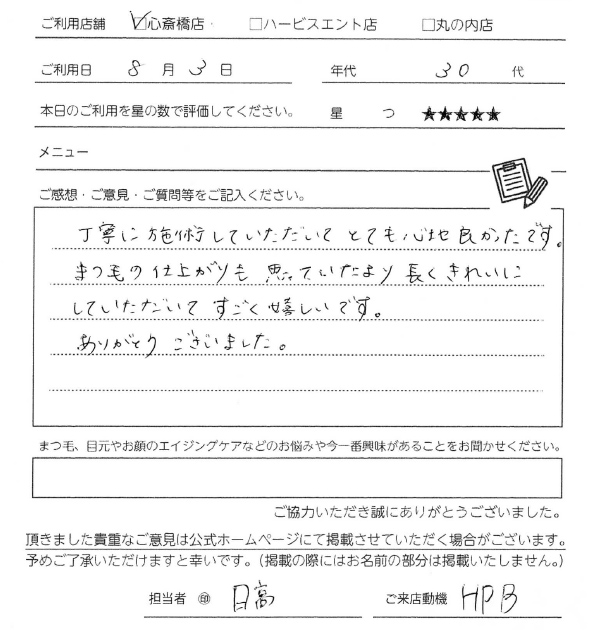 ご利用店舗 ☑心斎橋店 □ハービスエント店 □丸の内店
ご利用日 8 月 3 日 年代 30 代
本日のご利用を星の数で評価してください。 星 つ ★★★★★
メニュー
ご感想・ご意見・ご質問等をご記入ください。
丁寧に施術していただいて とても心地良かったです。
まつ毛の仕上がりも 思っていたより 長くきれいに
していただいて すごく嬉しいです。
ありがとう ございました。
まつ毛、目元やお顔のエイジングケアなどのお悩みや今一番興味があることをお聞かせください。
ご協力いただき誠にありがとうございました。
頂きました貴重なご意見は公式ホームページにて掲載させていただく場合がございます。
予めご了承いただけますと幸いです。(掲載の際にはお名前の部分は掲載いたしません。)
担当者 ㊞ 日高 ご来店動機 HPB